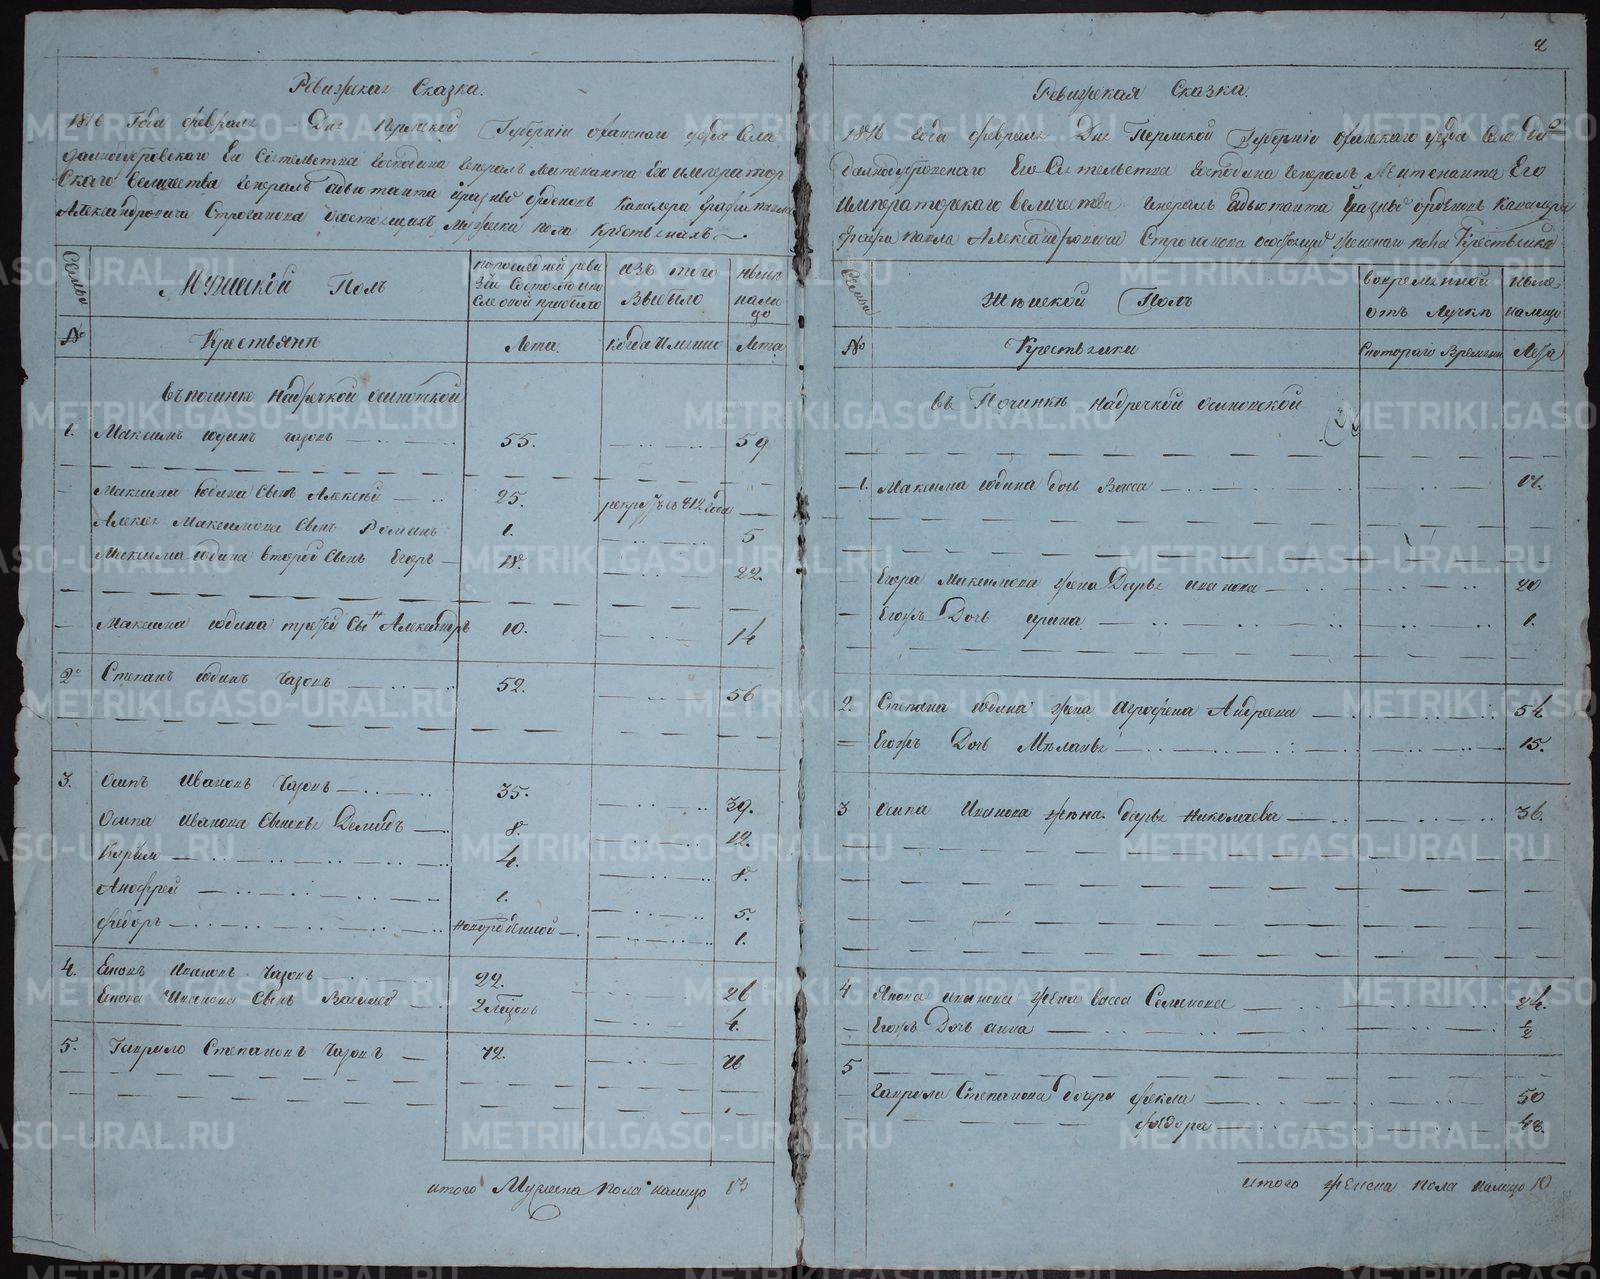 Ревижская Сказка.
1816 Года февраля Дня Пермской Губернiи оханскаго уезда села
Его Сiятельства Господина Генералъ Лейтенанта Его император
скаго величества Генералъ адъютанта и разныхъ орденовъ Кавалера графа павла
Александровича Строганова о состоящихъ Мужеска пола Крестьянахъ
Семьи
Мужеской Полъ
по последней реви
зiи Состояло и по
сле оной прибыло
изъ того
выбыло
ныне
нали
цо
№
Крестьяне
Лета
Когда Имянно
Лета
въ починке надречкой осиновской
1. Максимъ юдинъ чазовъ 55. 59
Максима Юдина Сынъ Алексей 25. рекрутъ въ 812 года
Алексея Максимова Сынъ Романъ 1. 5
Максима юдина второй Сынъ Егоръ 18. 22.
Максима юдина третей Сынъ Александръ 10. 14
2 Степанъ юдинъ Чазовъ 52. 56
3. Осипъ Ивановъ Чазовъ 35. 39.
Осипа Иванова Сыновья Демидъ 8. 12.
Кирило 4. 8.
Анофрей 1. 5.
Федоръ новорожденной 1.
4. Ивановъ Чазовъ 22. 26
Иванова Сынъ Василей 2 месяцовъ 4.
5. Гаврило Степановъ Чазовъ 72.
итого Мужеска пола налицо 13
2
Ревижская Сказка.
1816 года февраля Дня Пермской Губернiи оханскаго уезда села
Его Сiятельства Господина Генералъ Лейтенанта Его
Императорскаго величества Генералъ Адъютанта и разныхъ орденовъ Кавалера
графа павла Александровича Строганова о состоящихъ женскаго пола Крестьянка
Семьи
Женской Полъ
во временной
отъ Лучке
ныне
налицо
№
Крестьянки
Скотораго Времени
Лета
въ Починке надречкой осиновской
1. Максима юдина дочь Васса 17.
Егора Максимова жена Дарья иванова 20
Егожъ Дочь ирина 1.
2. Степана юдина жена Агрофена Андреева 54
Егожъ Дочь Меланья 15.
3 Осипа Иванова жена Дарья Николаева 36.
4 иванова жена васса Семенова 24.
Егожъ Дочь анна ½
5
Гаврила Степанова дочери фекла 50
федора 48.
итого женска пола налицо 10
METRIKI.GASO-URAL.RU